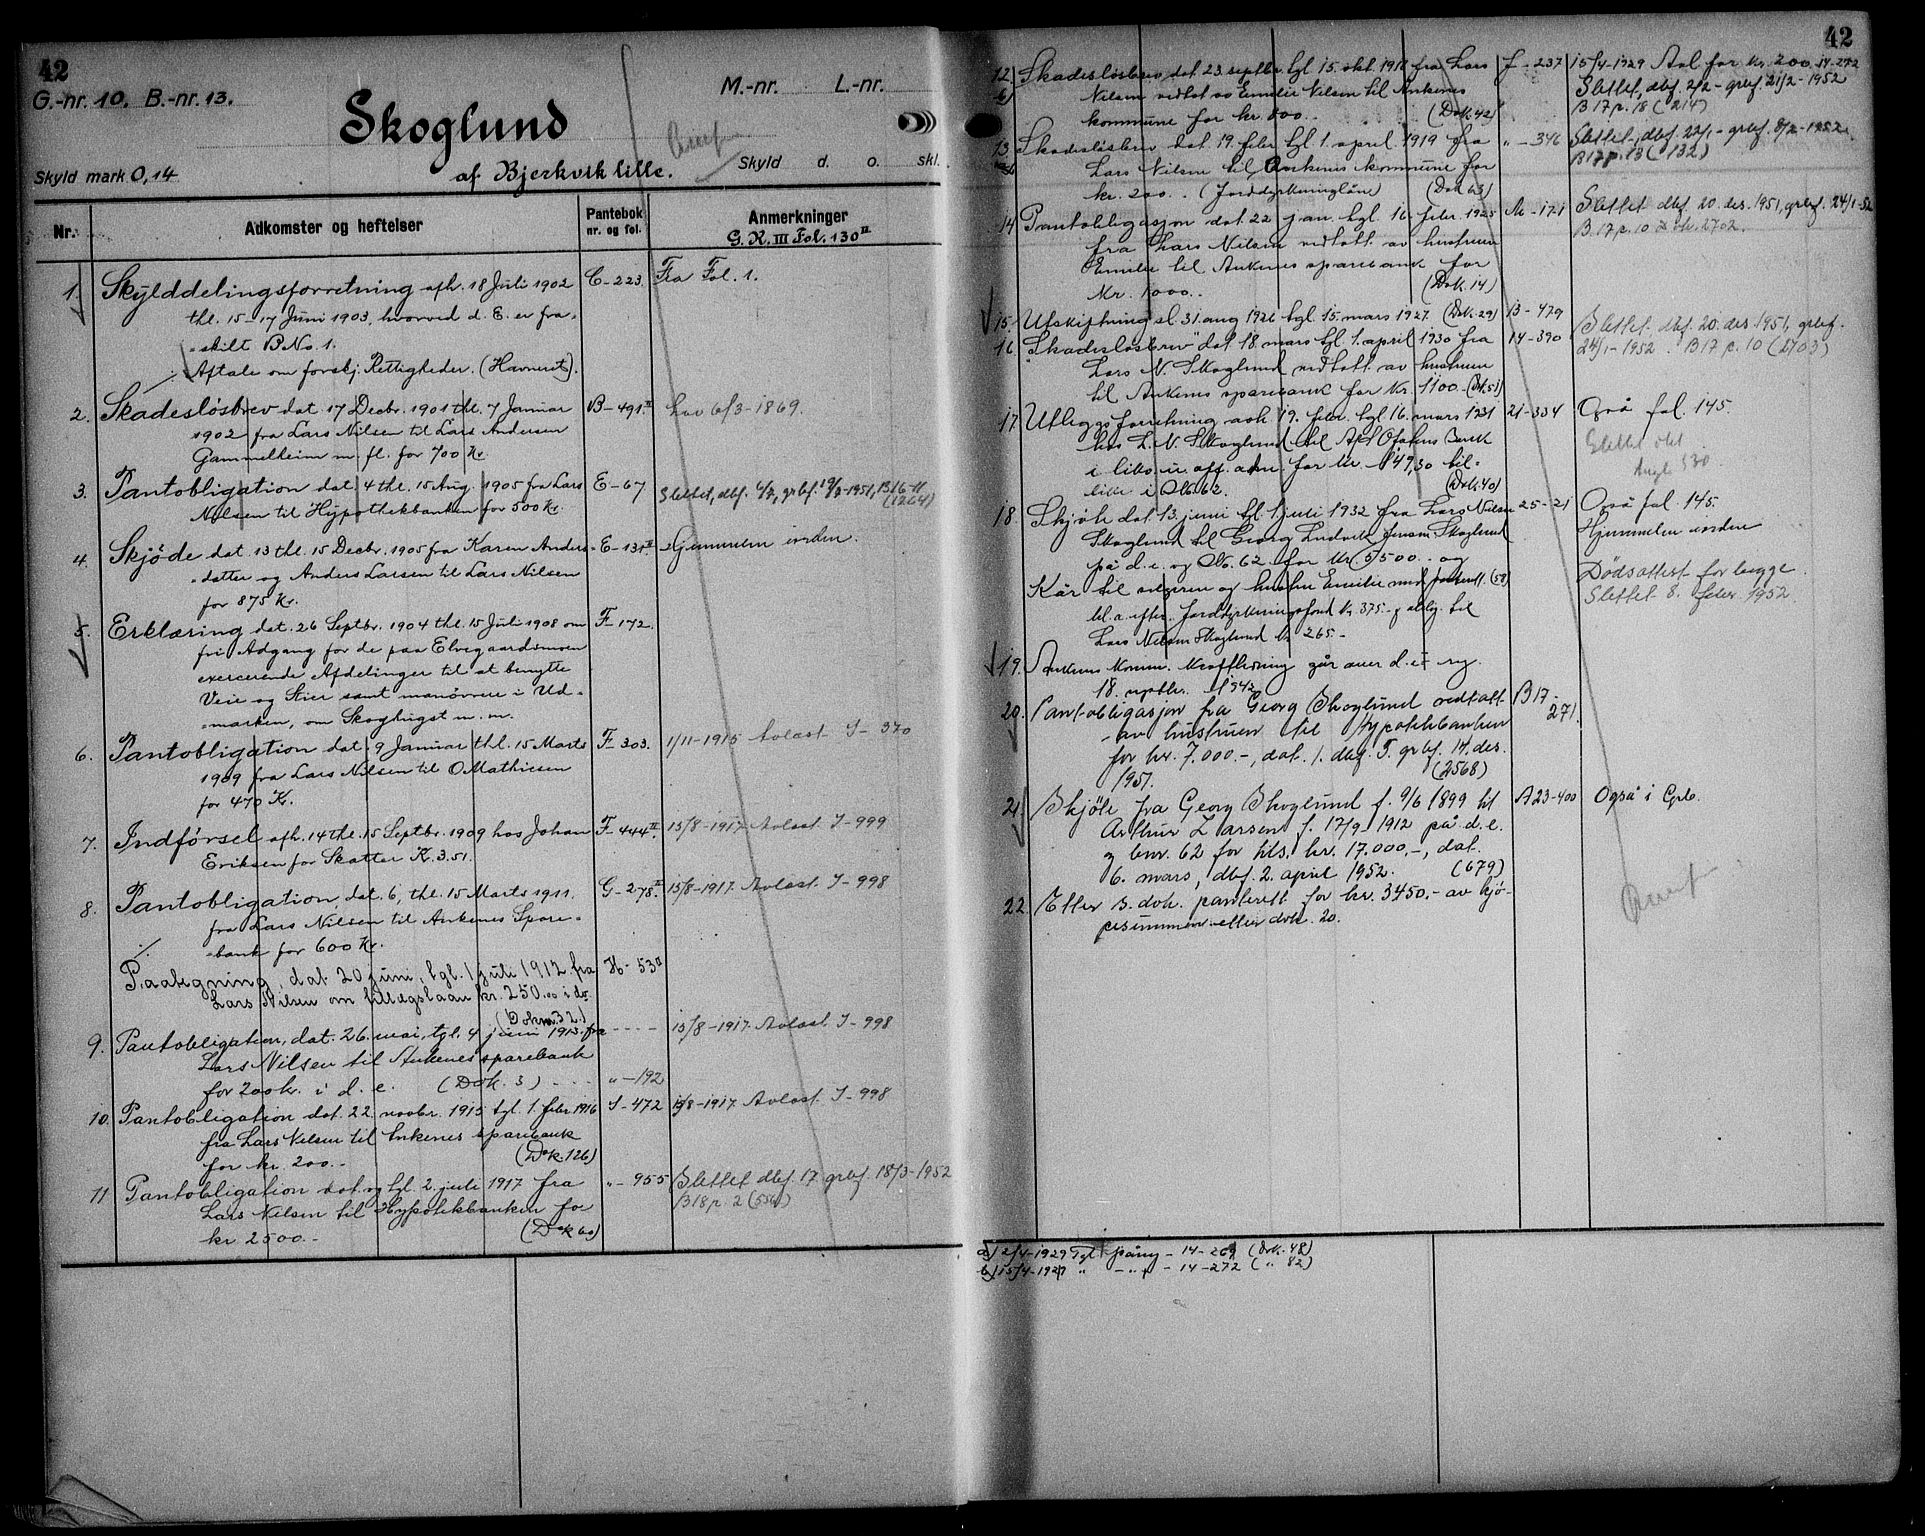 42
G.-nr. 10. B.-nr. 13.
M.-nr. L.-nr.
Skoglund
Skyld mark 0,14
af Bjerkvik lille.
Skyld d. o. skl.
Nr.
Adkomster og heftelser
Pantebok nr. og fol.
Anmerkninger
G. K. III Fol. 130 II
1. Skylddelingsforretning afh. 18 Juli 1902 C-223. Fra Fol. 1.
thl. 15-17 Juni 1903, hvorved d. E. er fra-
skilt B.No. 1.
Aftale om forskj. Rettigheder. (Havneret).
2. Skadesløsbrev dat. 17 Decbr. 1901 thl. 7 Januar B-491. II Lov 6/3-1869.
1902 fra Lars Nilsen til Lars Andersen
Gammelheim m. fl. for 700 Kr.
3. Pantobligation dat. 4 thl. 15 Aug. 1905 fra Lars E-67
Nilsen til Hypothekbanken for 500 Kr. (1264)
4. Skjøde dat 13 thl. 15 Decbr. 1905 fra Karen Anders- E-131. II Hjemmelen iorden.
datter og Anders Larsen til Lars Nilsen
for 875 Kr.
5. Erklæring dat. 26 Septbr. 1904 thl. 15 Juli 1908 om F-172.
fri Adgang for de paa Elvegaardsmoen
exercerende Afdelinger til at benytte
Veie og Stier samt manövrere i Ud-
marken, om Skoghugst m. m.
6. Pantobligation dat. 9 Januar thl. 15 Marts F-303. 1/11-1915 Avlæst I-370
1909 fra Lars Nilsen til O. Mathisen
for 470 Kr.
7. Indførsel afh. 14 thl. 15 Septbr. 1909 hos Johan F-444 II. 15/8-1917. Avlæst I-999
Eriksen for Skatter Kr. 3.51.
8. Pantobligation, dat. 6, thl. 15 Marts 1911. G-278. II 15/8-1917. Avlæst I-998
fra Lars Nilsen til Ankenes Spare-
bank for 600 Kr.
Paategning, dat. 20 juni, tgl. 1 juli 1912 fra H-53 II
Lars Nilsen om tillægslaan kr. 250.00 i do.
(Dokm. 32.)
9. Pantobligation, dat. 26. mai, tgl. 4 juni 1913. fra 15/8-1917. Avlæst I-998
Lars Nilsen til Ankenes sparebank
for 200 kr. i d. e. (Dok. 3) "-192
10. Pantobligation dat. 22 novbr. 1915 tgl. 1. febr 1916 I-472 15/8-1917. Avlæst I-998
fra Lars Nilsen til Ankenes sparebank
for kr. 200.- (Dok. 126)
11 Pantobligation dat. og tgl. 2. juli 1917 fra "-955 Slettet dbf. 17. grbf. 18/3-1952
Lars Nilsen til Hypotekbanken for B18 p. 2
kr 2500.- (Dok 60)
42
12. Skadesløsbrev dat. 23. septbr. tgl. 15. okt. 1918 fra Lars J-237 15/4-1929 Avl for kr. 200. 14-272
b) Nilsen vedtat av Emelie Nilsen til Ankenes Slettet, dbf. 2/2-grbf. 21/2-1952
kommune for kr. 800.- (Dok. 42) B 17 p. 18 (214)
13 Skadesløsbrev dat. 19. febr. tgl. 1. april 1919 fra "-346 Slettet, dbf. 22/1-grbf. 8/2-1952
Lars Nilsen til Ankenes kommune for B17 p. 13 (132)
kr. 200.- (Jorddyrkningslån) (Dok 63)
14 Pantobligasjon dat. 22 jan. tgl. 16. febr. 1925 M-171 Slettet dbf. 20. des. 1951, grbf. 24/1-52
fra Lars Nilsen vedtatt av hustruen B 17 p. 10 2702.
Emelie til Ankenes sparebank for
Kr. 1000.- (Dok. 14)
15. Utskiftning sl. 31. aug 1926 tgl. 15. mars 1927. (Dok. 29) 13-479
16. Skadesløsbrev dat. 18. mars tgl. 1. april 1930 fra 14-390 Slettet. dbf. 20. des 1951, grbf.
Lars N. Skoglund vedtatt av hustruen 24/1-1952. B17 p. 10 (2703)
til Ankenes sparebank for Kr. 1100.- (Dok 51)
17. Utleggsforretning avh. 19. febr. tgl. 16. mars 1931 21-334 Også fol. 145.
hos L. N. Skoglund til A/S Ofotens Bank Slettet
i likv. u. off. adm. for Kr. 149,30 til-
like i Bb. 62. (Dok. 40)
18 Skjøte dat. 13. juni tgl. 1. juli 1932 fra Lars Nilsen 25-21 Også fol. 145.
Skoglund til Georg Ludvik Jensen Skoglund Hjemmelen iorden
på d. e. og Bb. 62 for Kr. 5500.- og
Kår til selgeren og hustru Emelie med panterett. (58) Dødsattest for begge.
bl. a. efter Jorddyrkningsfond Kr. 375.- og oblig. til Slettet 8. febr. 1952.
Lars Nilsen Skoglund kr 265.-
19. Ankenes Komm. Kraftledning går over d. e.
18. septbr. 1942
20. Pantobligasjon fra Georg Skoglund vedtatt B 17-271.
av hustruen til Hypotekbanken
for kr. 7.000.-, dat. 1. dbf. 7. grbf. 14. des.
1951. (2568)
21. Skjøte fra Georg Skoglund f. 9/6 1899 til A23-400 Også i Grb.
Arthur Larsen f. 17/9-1912 på d. e.
og bnr. 62 for tils. kr. 17.000,-, dat.
6. mars, dbf. 2. april 1952. (679)
22. Etter s. dok. panterett for kr. 3450.- av kjø-
pesummen etter dok. 20.
a) 2/4-1929 Tgl. påny - 14-269 (Dok. 48)
b) 15/4-1929 " -"- - 14-272 (" 82)